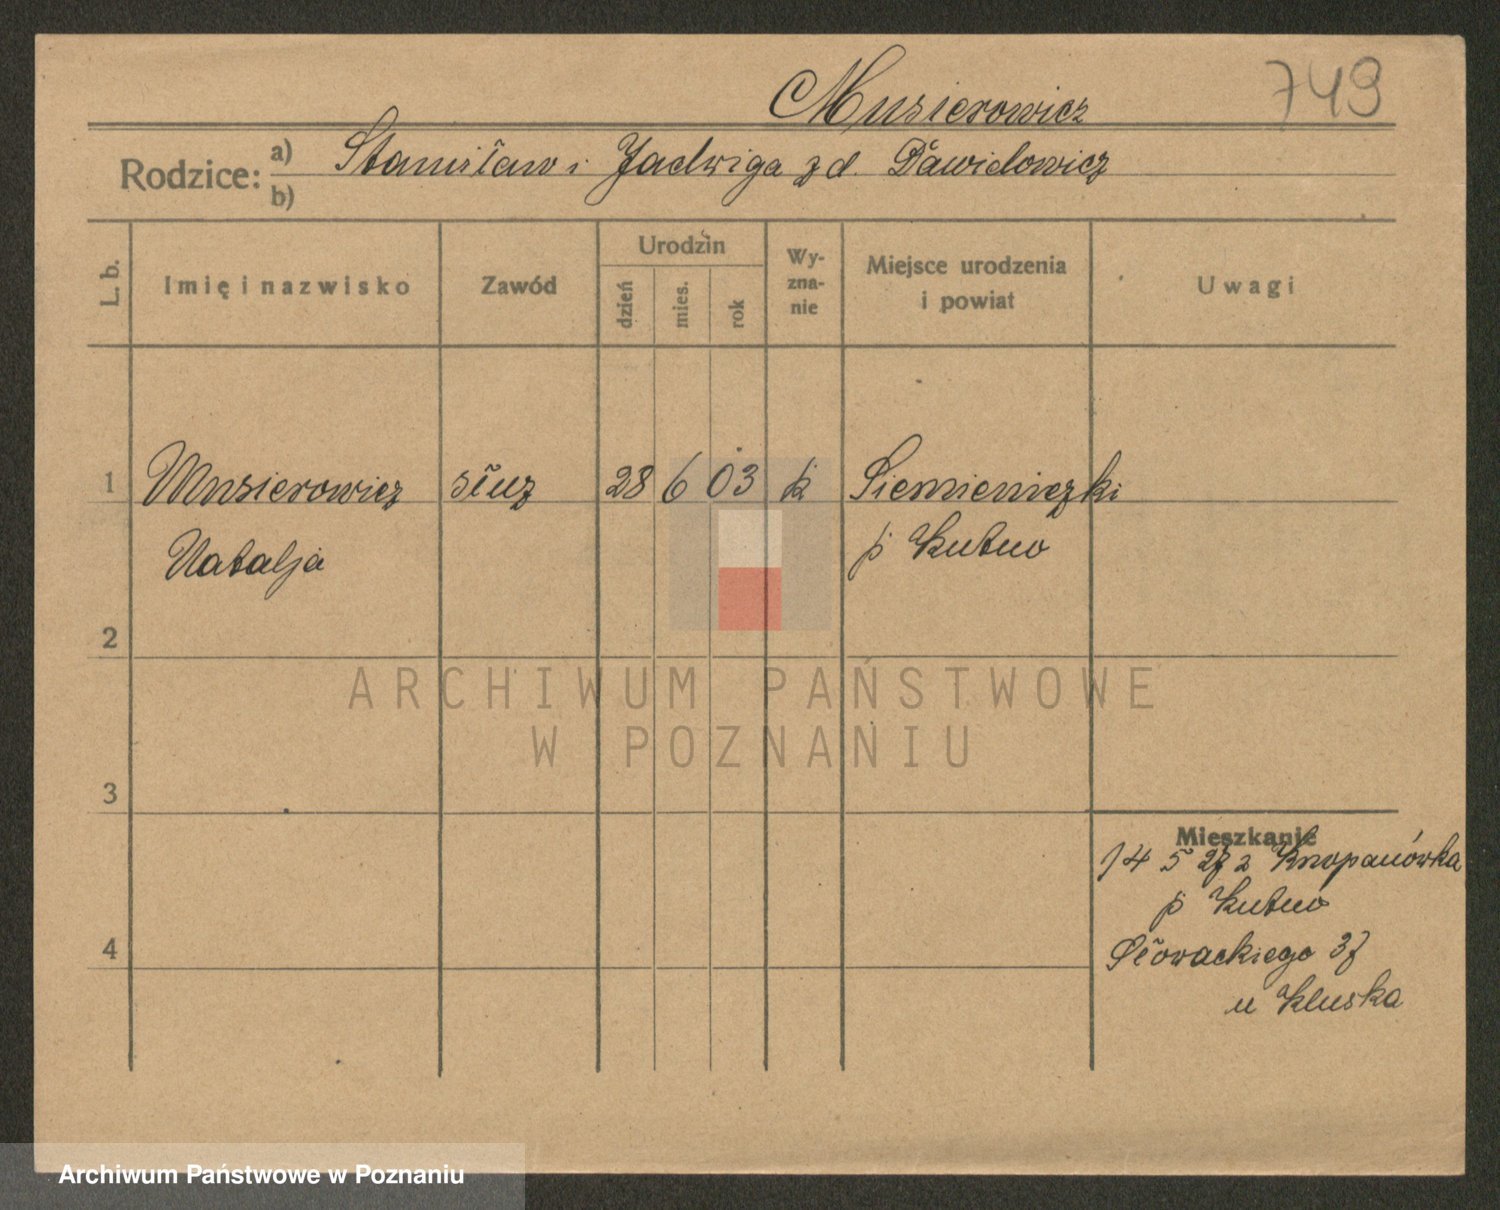 Musierowicz 749
Rodzice: a) Stanisław i Jadwiga z d. Dawidowicz
b)
L. b. Imię i nazwisko Zawód Urodzin dzień mies. rok Wyznanie Miejsce urodzenia i powiat Uwagi
1 Musierowicz służ 28 6 03 k Siemieniczki
Natalja p Kutno
2
ARCHIWUM PAŃSTWOWE
W POZNANIU
3
Mieszkanie
14 5 27 z
p Kutno
4 Słowackiego 37
u Kluska
Archiwum Państwowe w Poznaniu